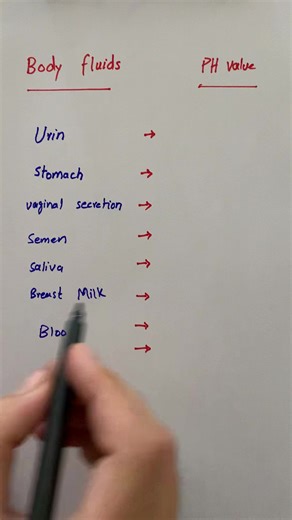 Body fluids PH value
Urin →
Stomach →
vaginal secretion →
Semen →
Saliva →
Breast Milk →
Bloo →
→